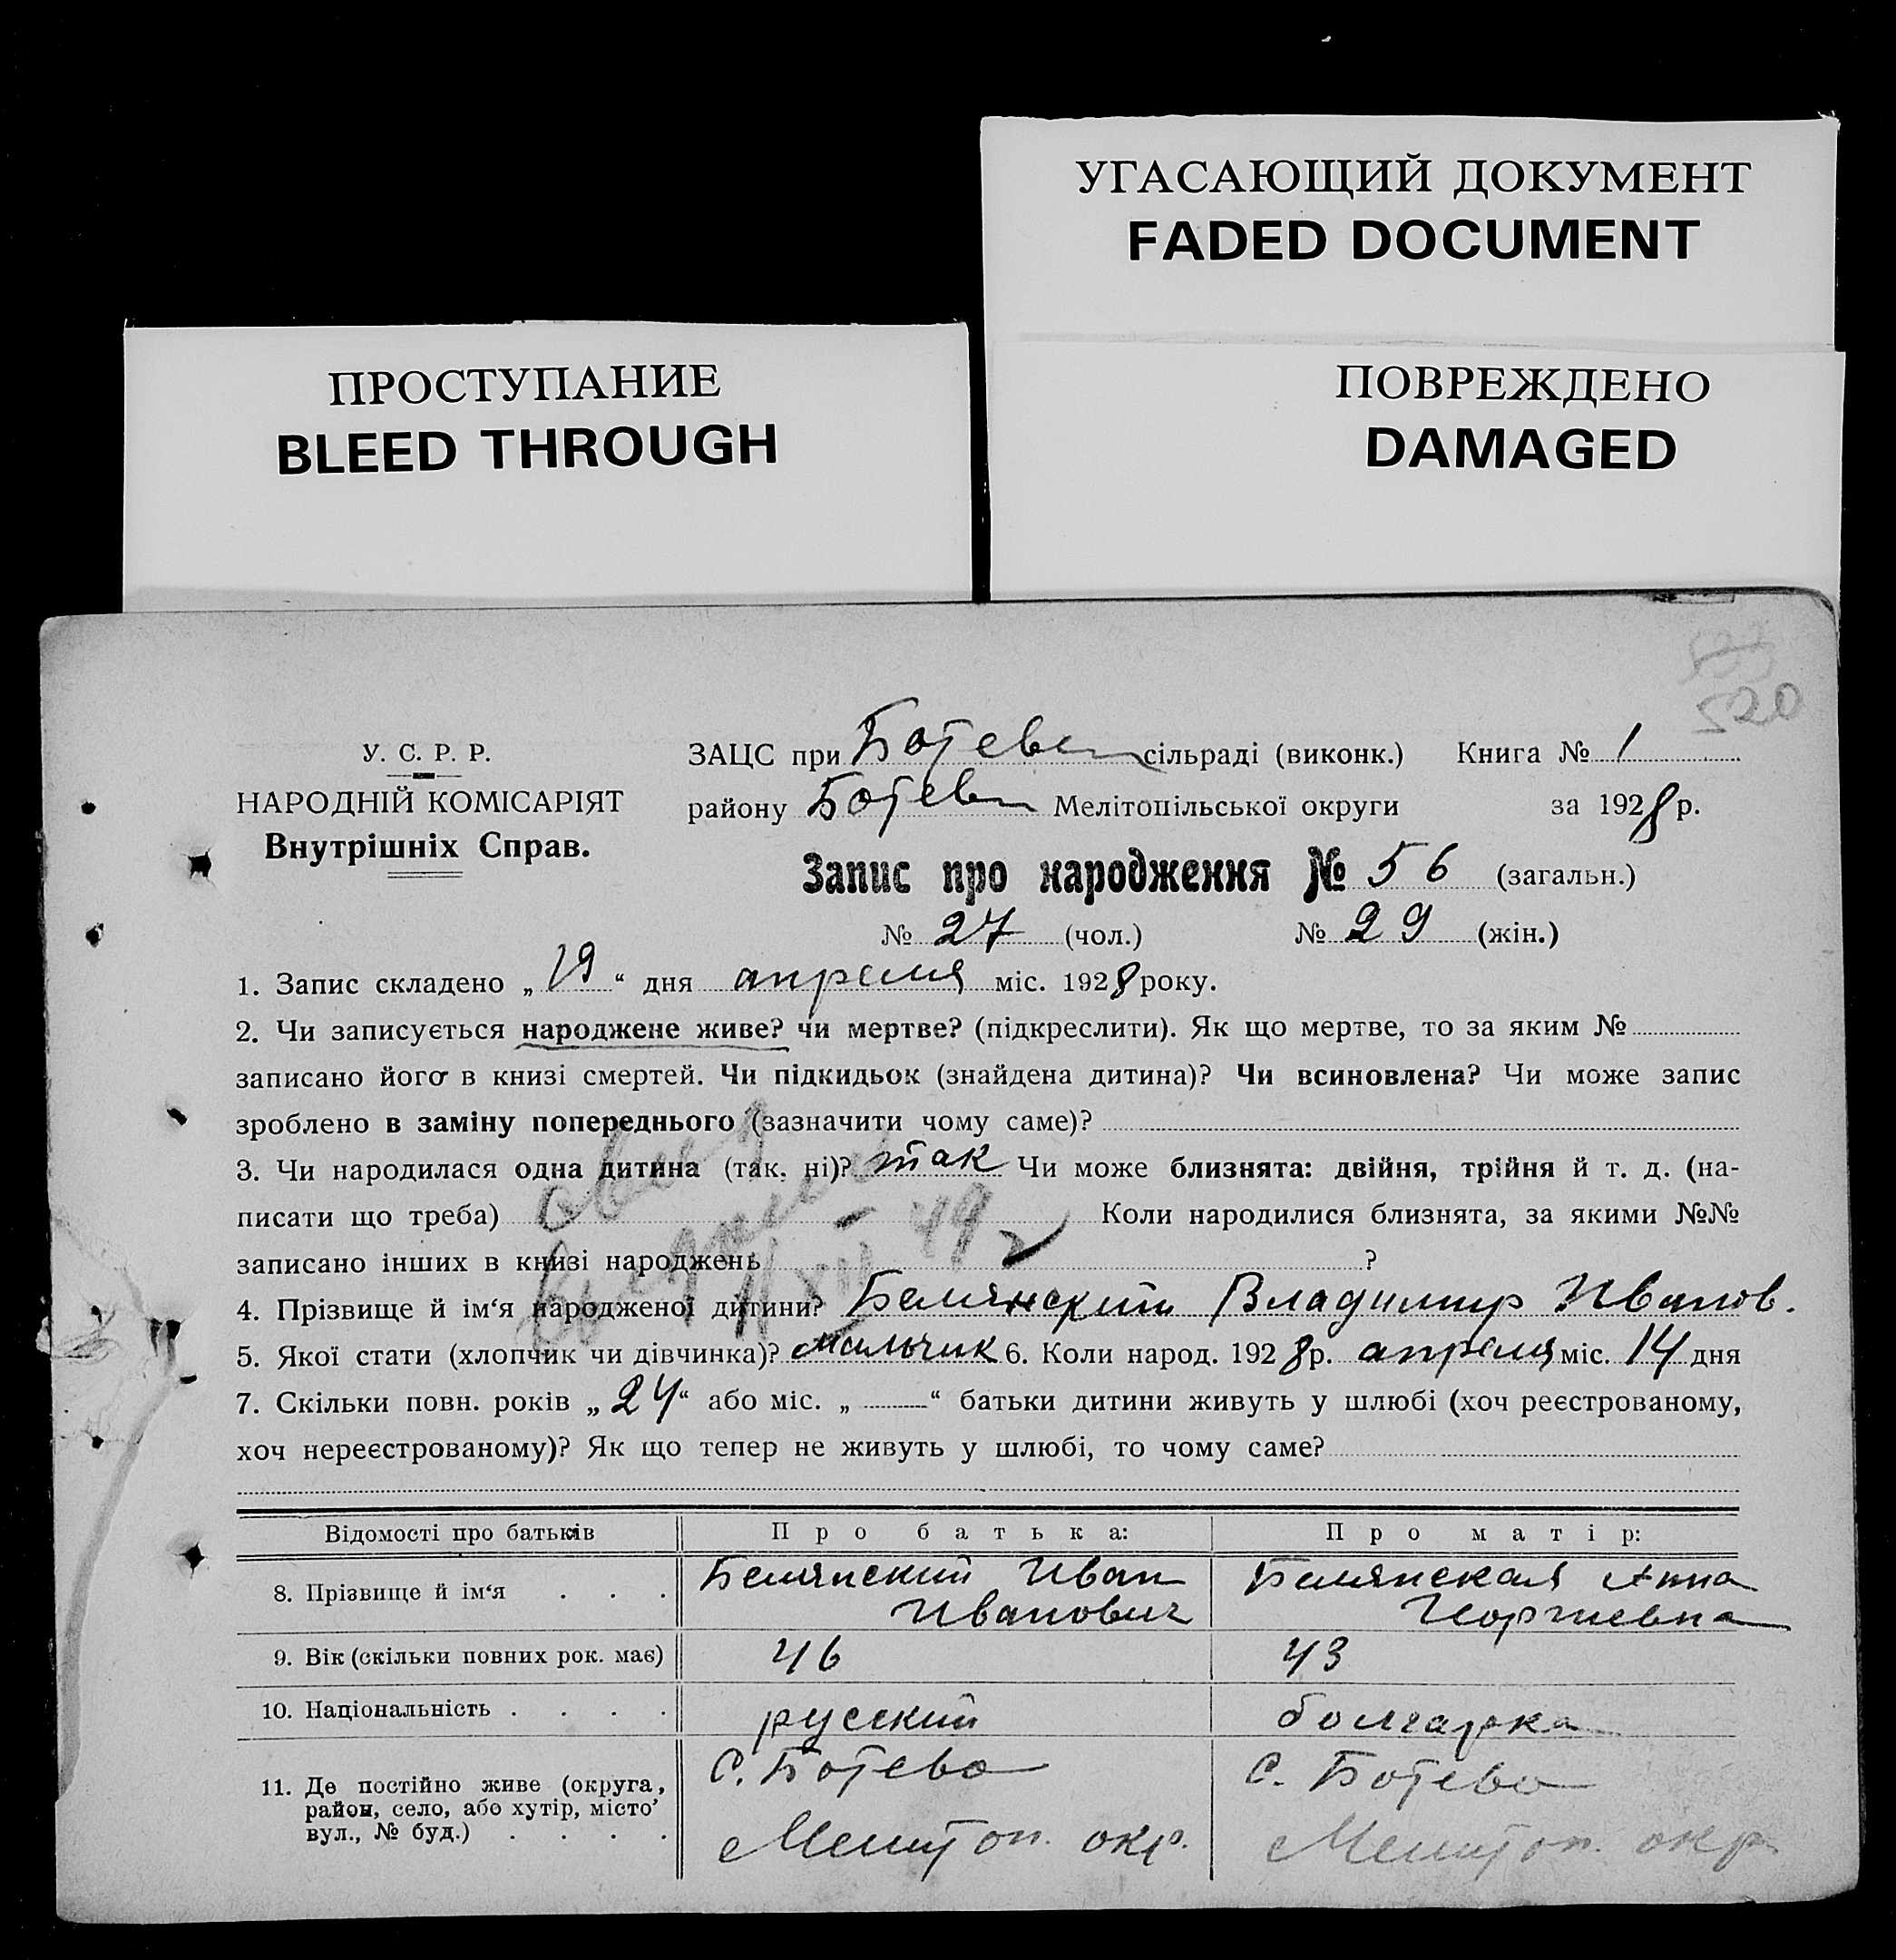 УГАСАЮЩИЙ ДОКУМЕНТ
FADED DOCUMENT
ПРОСТУПАНИЕ
BLEED THROUGH
ПОВРЕЖДЕНО
DAMAGED
520
У. С. Р. Р.
НАРОДНІЙ КОМІСАРІЯТ
Внутрішніх Справ.
ЗАЦС при Ботевск сільраді (виконк.) Книга № 1
району Ботевск Мелітопільської округи за 1928 р.
Запис про народження № 56 (загальн.)
№ 27 (чол.) № 29 (жін.)
1. Запис складено „19“ дня апреля міс. 1928 року.
2. Чи записується народжене живе? чи мертве? (підкреслити). Як що мертве, то за яким №
записано його в книзі смертей. Чи підкидьок (знайдена дитина)? Чи всиновлена? Чи може запис
зроблено в заміну попереднього (зазначити чому саме)?
3. Чи народилася одна дитина (так, ні)? так Чи може близнята: двійня, трійня й т. д. (на-
писати що треба) Коли народилися близнята, за якими №№
записано інших в книзі народжень ?
4. Прізвище й ім‘я народженої дитини? Белянский Владимир Иванов.
5. Якої стати (хлопчик чи дівчинка)? мальчик 6. Коли народ. 1928 р. апреля міс. 14 дня
7. Скільки повн. років „24“ або міс. „ “ батьки дитини живуть у шлюбі (хоч реєстрованому,
хоч нереєстрованому)? Як що тепер не живуть у шлюбі, то чому саме?
Відомості про батьків Про батька: Про матір:
8. Прізвище й ім‘я . . . Белянский Иван Иванович Белянская Анна Георгиевна
9. Вік (скільки повних рок. має) 46 43
10. Національність . . . . русский болгарка
11. Де постійно живе (округа, район, село, або хутір, місто, вул., № буд.) . . . . С. Ботево Мелитоп. окр. С. Ботево Мелитоп. окр.